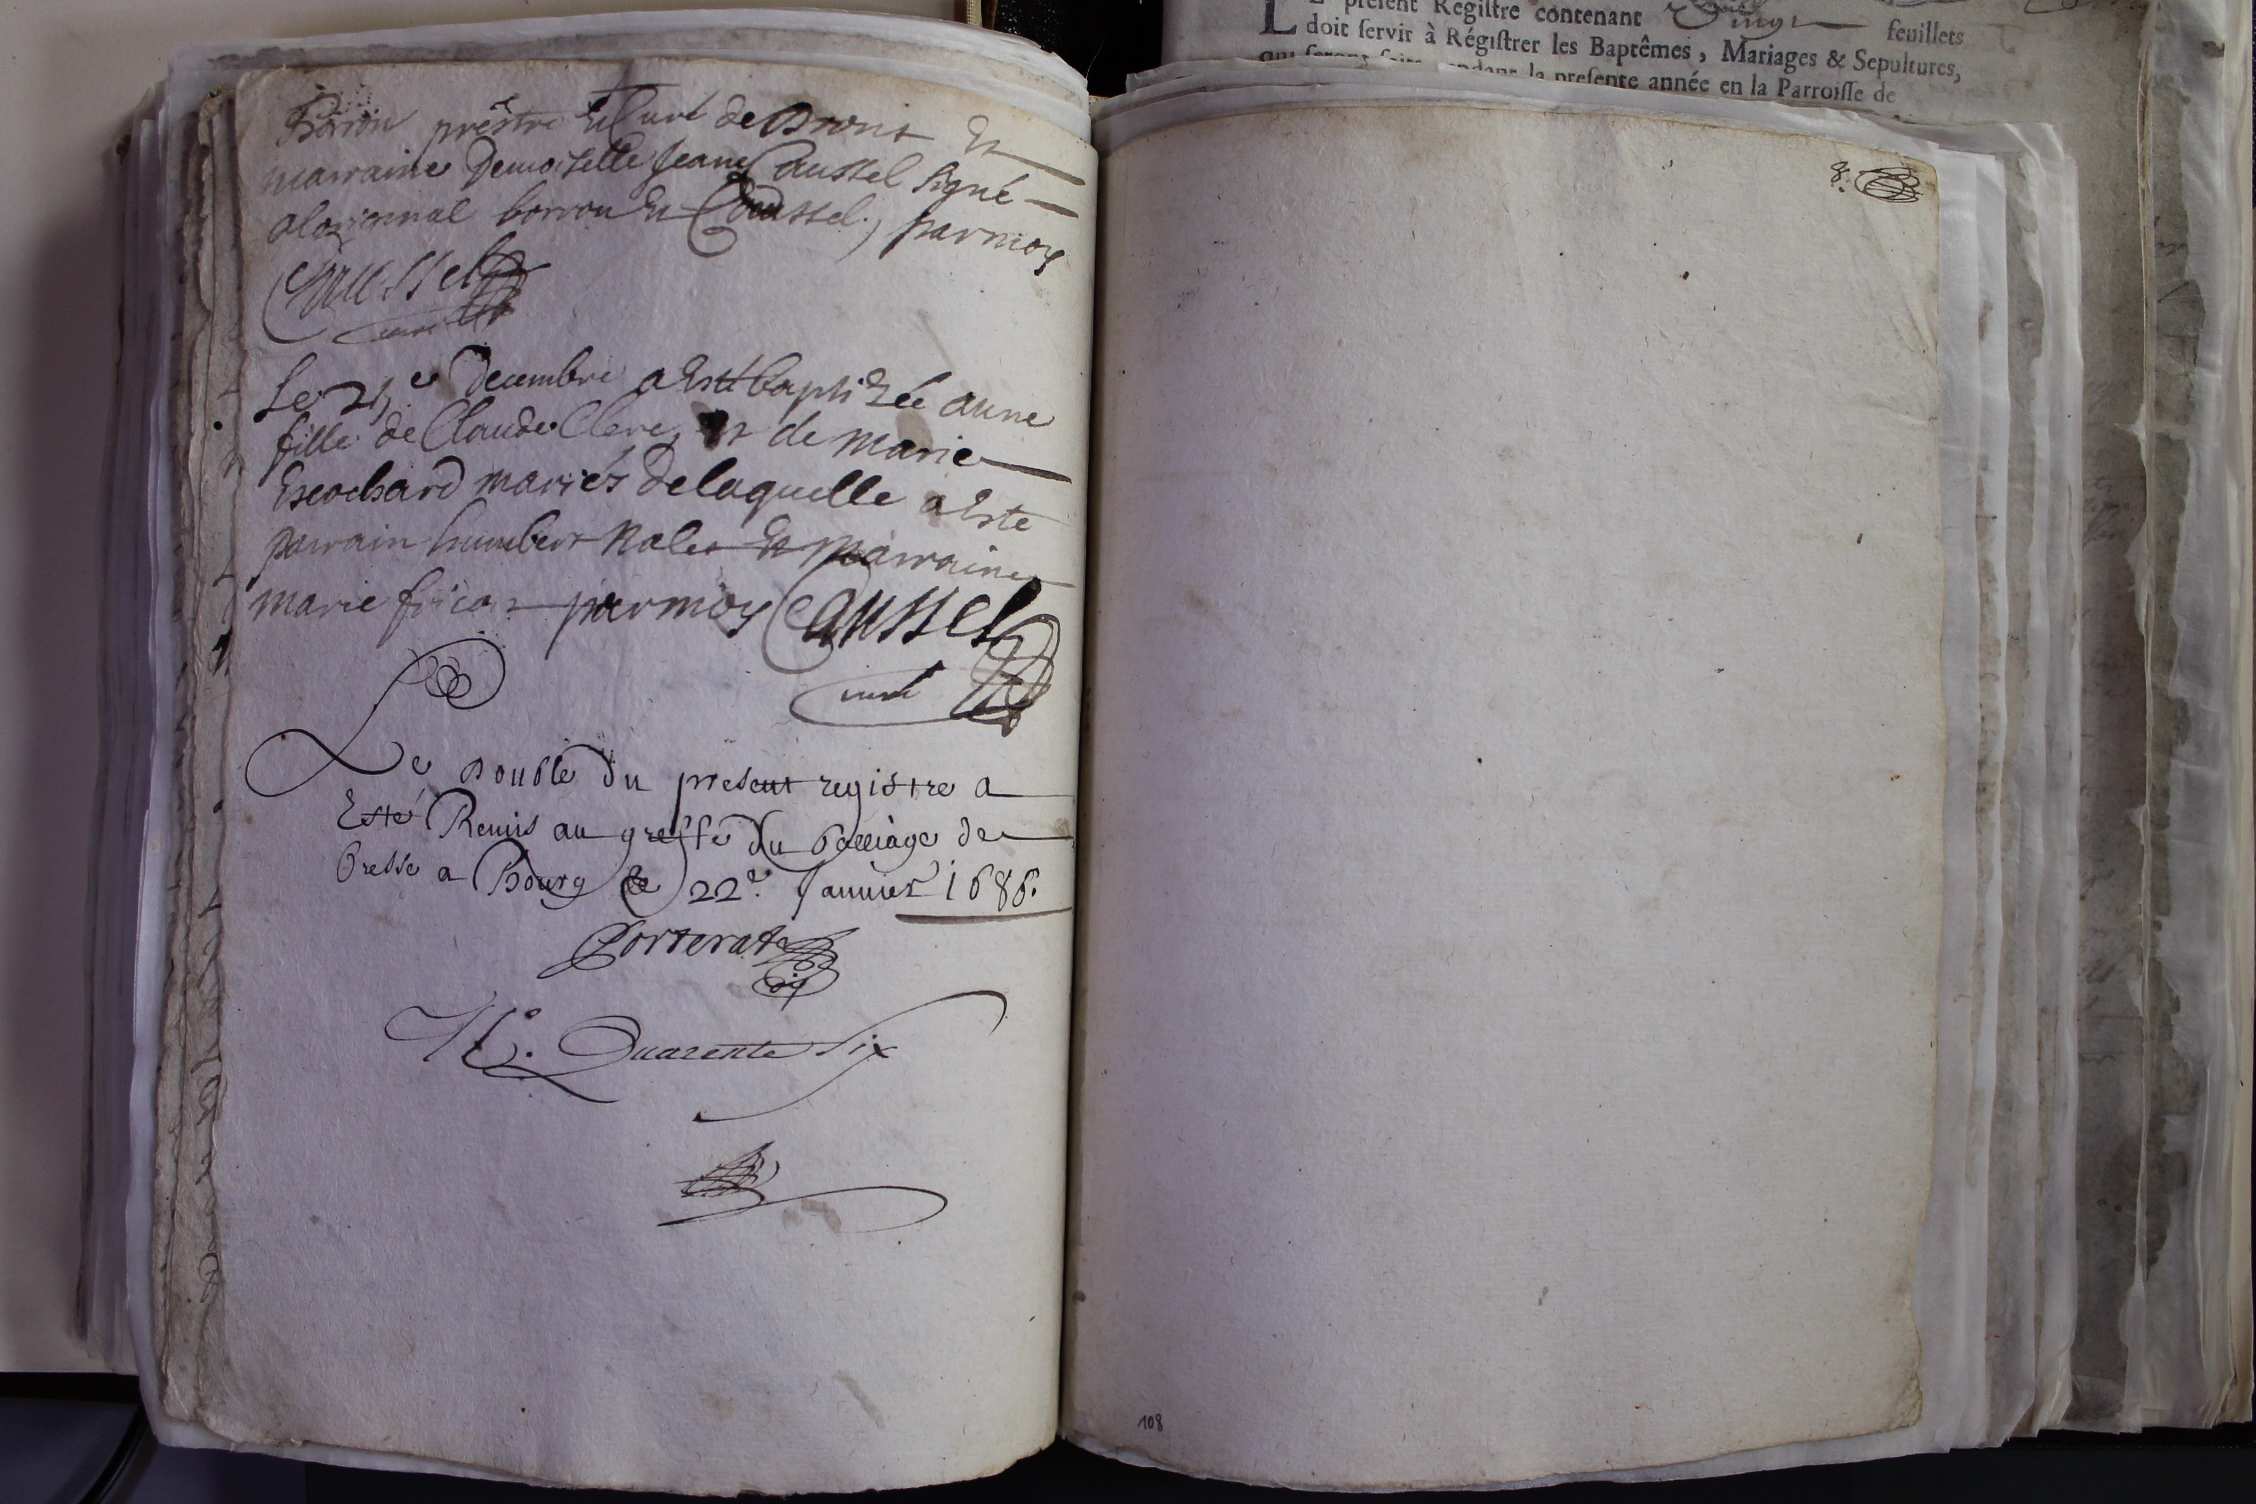 Borron prestre Et Curé de Drons Et
marraine Demoiselle Jeane Caussel signé
aloriginal borron Et Caussel., par moy
Caussel
curé
Le 21.e decembre a Esté baptizée anne
fille de Claude Clerc, Et de marie
Escochard mariés de laquelle a Este
parrain humbert Nalet Et marraine
marie fricat par moy Caussel
curé
Le Double du present registre a
Esté Remis au greffe du balliage de
bresse a Bourg le 22e. Januier 1686.
Porterat
N.o Quarente Six
Le present Registre contenant Vingt feuillets
doit servir à Régistrer les Baptêmes, Mariages & Sepultures,
qui seront faits pendant la presente année en la Parroisse de
8.
108